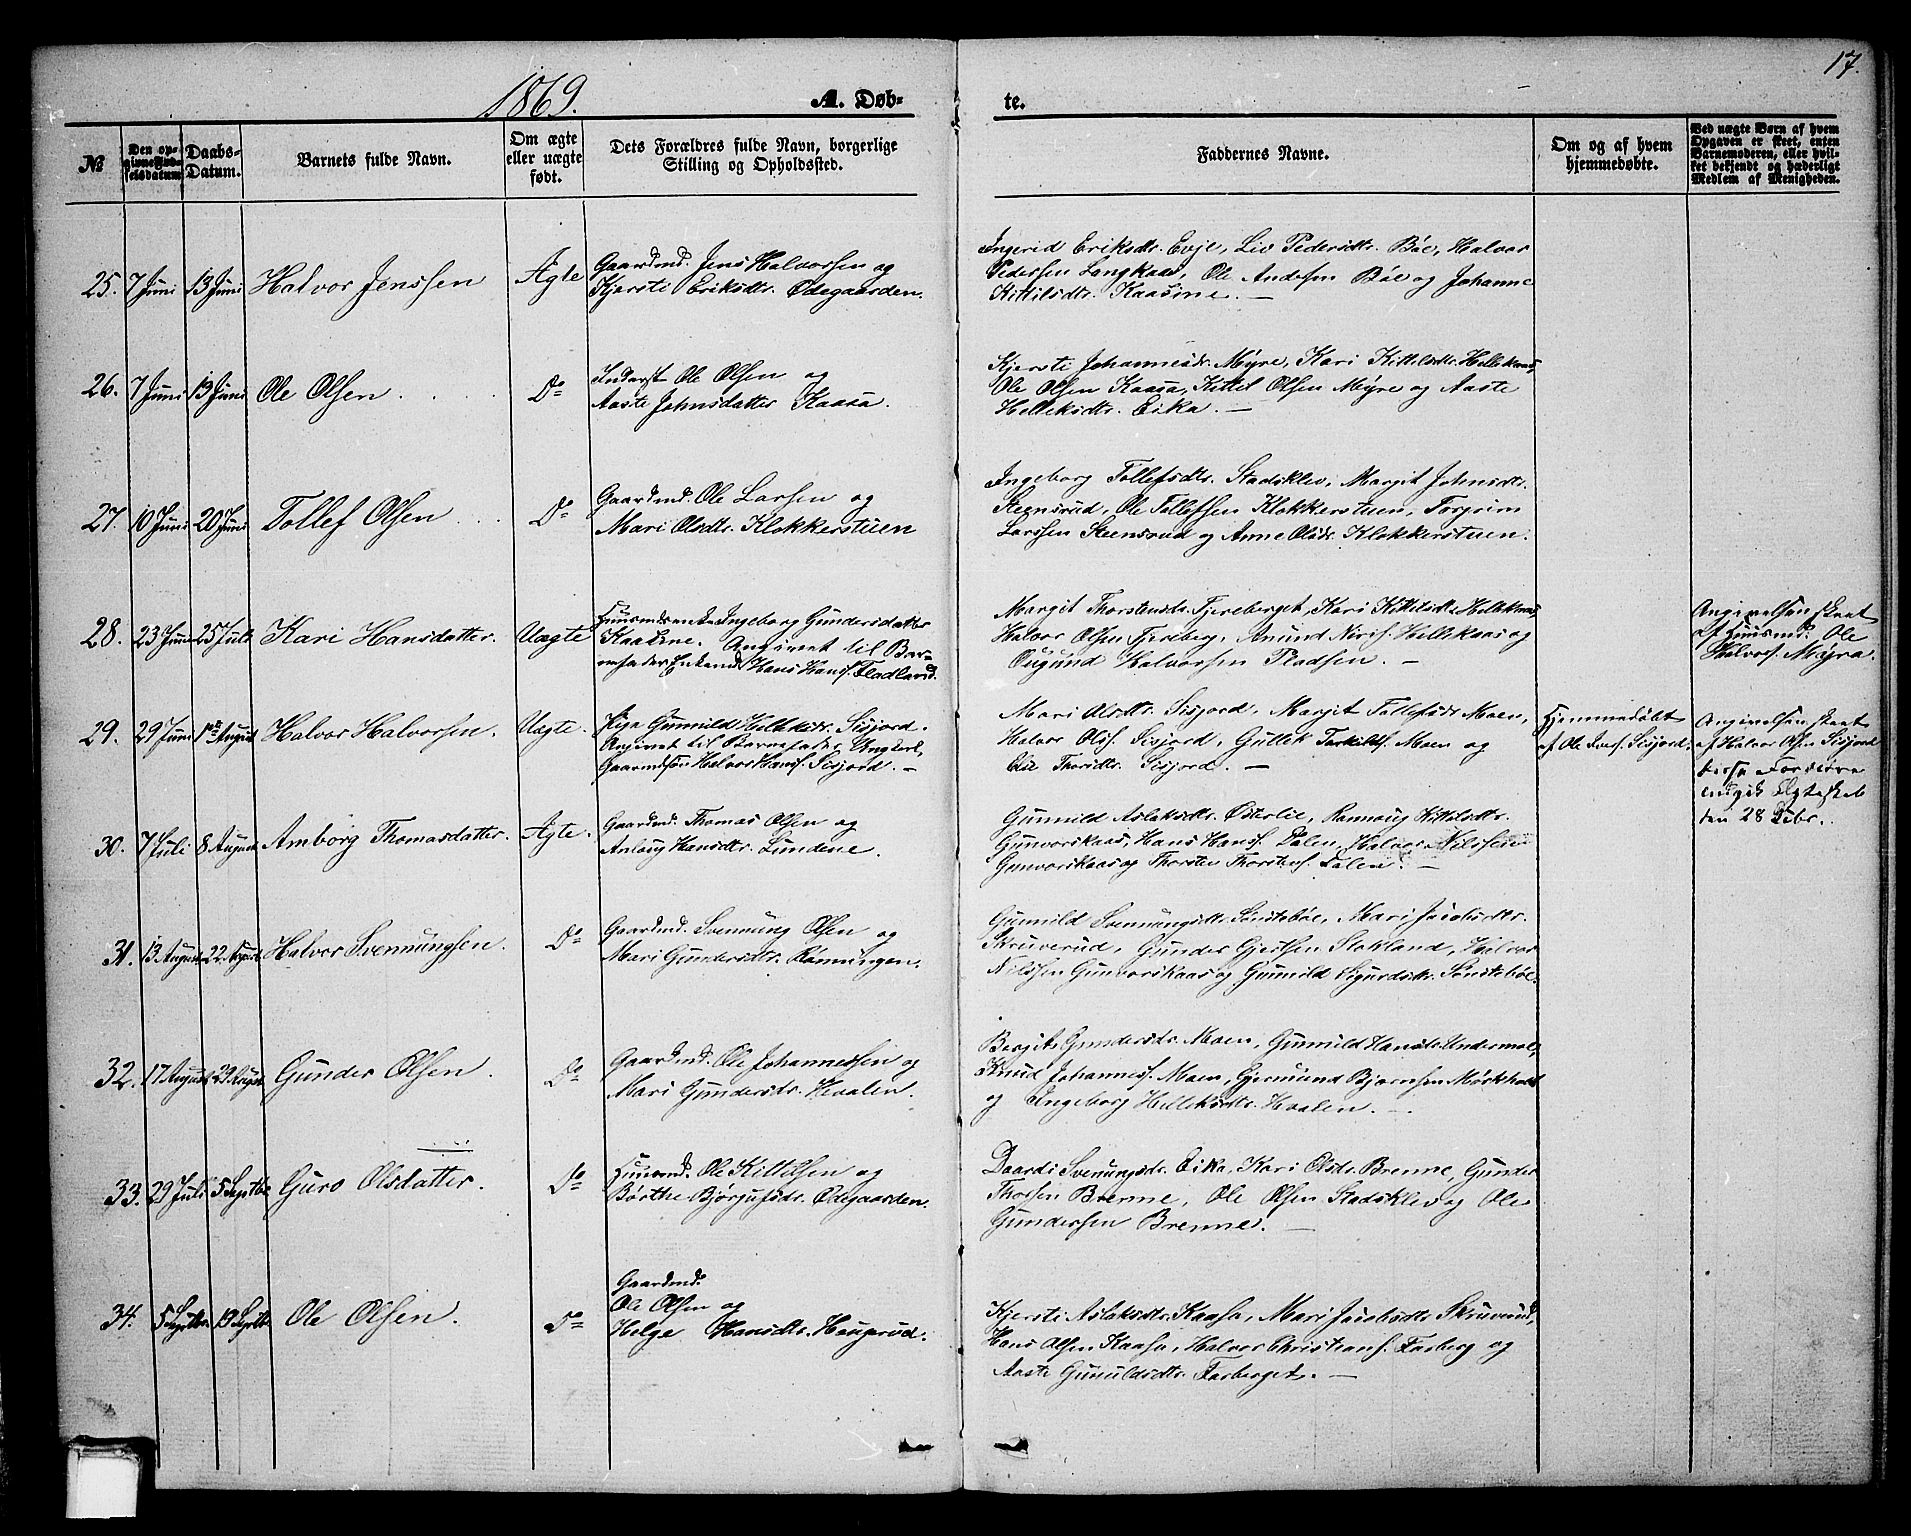 17.
1869.
A. Døb-
te.
№
Den op-
givne Fød-
selsdatum
Daabs-
Datum.
Barnets fulde Navn.
Om ægte
eller uægte
født.
Dets Forældres fulde Navn, borgerlige
Stilling og Opholdssted.
Faddernes Navne.
Om og af hvem
hjemmedøbte.
Ved uægte Børn af hvem
Opgaven er skeet, enten
Barnemoderen, eller hvil-
ket bekjendt og hæderligt
Medlem af Menigheden.
25. 7 Juni 13 Juni Halvor Jenssen Ægte
Gaardmd. Jens Halvorsen og
Kjersti Eriksdtr. Ødegaarden.
Ingerid Eriksdtr. Evje, Liv Pedersdtr. Bøe, Halvor
Pedersen Langkaas, Ole Andersen Bøe og Johanne
Kittilsdtr. Kaasine. —
26. 7 Juni 13 Juni Ole Olsen Do
Inderst Ole Olsen og
Aaste Johnsdatter Kaasa.
Kjersti Johannesdr. Myre, Kari Kittilsdtr. Hellekaas,
Ole Olsen Kaasa, Kittel Olsen Myre og Aaste
Helleksdtr. Eika. —
27. 10 Juni 20 Juni Tollef Olsen Do
Gaardmd. Ole Larsen og
Mari Olsdtr. Klokkerstuen
Ingeborg Tollefsdtr. Stadsklev, Margit Johnsdtr.
Steensrud, Ole Tollefsen Klokkerstuen, Torgrim
Larssen Steensrud og Anne Olsdr. Klokkerstuen.
28. 23 Juni 25 Juli Kari Hansdatter. Uægte
Ingeborg Gundersdatter
Kaasine. Angivet til Bar-
nefader Enkemd. Hans Hans. Fladland.
Margit Thorstensdr. Fjereberget, Kari Kittilsdtr. Hellekaas,
Halvor Olsen Fjereberg, Amund Niris. Hellekaas og
Øugund Halvorsen Pladsen. —
Angivelsen skeet
af Huusmd. Ole
Halvors. Myra.
29. 29 Juni 1ste August Halvor Halvorsen. Uægte
Pige Gunnild Helleksdr. Sisjord.
Angivet til Barnefader Ungkrl.
Gaardmdsøn Halvor Hans. Sisjord. —
Mari Olsdtr. Sisjord, Margit Tollefsdr. Moen,
Halvor Ols. Sisjord, Gullik Tarkilds. Moen og
Elie Thorsdtr. Sisjord. —
Hjemmedøbt
af Ole Ivers. Sisjord.
Angivelsen skeet
af Halvor Olsen Sisjord
disse Forældre
indgik Egteskab
den 28 Debr.
30. 7 Juli 8 August Amborg Thomasdatter. Ægte.
Gaardmd. Thomas Olsen og
Anlaug Hansdtr. Lundene.
Gunnild Aslaksdtr. Østerlie, Rannaug Kittilsdtr.
Gunvorskaas, Hans Hans. Dalen, Halvor Nilssen
Gunvorskaas og Thorsten Thorstens. Dalen. —
31. 13 August 22 August Halvor Svennungsen. Do
Gaardmd. Svennung Olsen og
Mari Gundersdtr. Rønningen.
Gunnild Svennungsdtr. Sønstebøe, Mari Jacobsdtr.
Skruverud, Gunder Gjertsen Stokland, Halvor
Nilssen Gunvorskaas og Gunnild Sigurdsdtr. Sønstebøe.
32. 17 August 29 August Gunder Olsen. Do
Gaardmd. Ole Johannessen og
Mari Gundersdtr. Hvalen.
Bergit Gundersdr. Moen, Gunnild Hansdtr.
Knud Johanness. Moen, Gjermund Bjørnsen
og Ingeborg Helleksdtr. Hvalen. —
33. 29 Juli 5 Septbr. Guro Olsdatter. Do
Huusmd. Ole Kittilsen og
Børthe Bjørgufsdtr. Ødegaarden.
Daardi Svenungsdr. Eika, Kari Olsdr. Brenne, Gunder
Thorsen Brenne, Ole Olsen Stadsklev og Ole
Gundersen Brenne. —
34. 5 Septbr. 19 Septbr. Ole Olsen. Do
Gaardmd.
Ole Olsen og
Helge Hansdtr. Haugerud.
Kjersti Aslaksdtr. Kaasa, Mari Jacobsdtr. Skruverud,
Hans Olsen Kaasa, Halvor Christians. Farberg og
Aaste Gunuldsdtr. Farberget. —